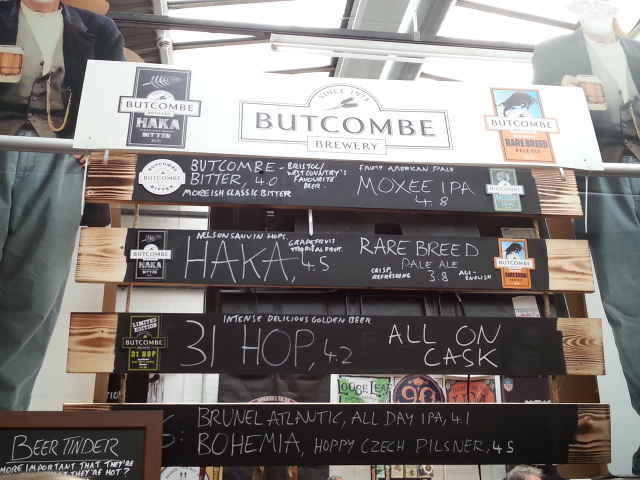 BUTCOMBE
HAKA
BITTER
SINCE 1978
BUTCOMBE
BREWERY
BUTCOMBE
RARE BREED
PALE ALE
BUTCOMBE
BITTER
BUTCOMBE-
BITTER, 4.0
MOREISH CLASSIC BITTER
BRISTOL/
WEST COUNTRY'S
FAVOURITE
BEER-
AMERICAN PALE
MOXEE IPA
4.8
BUTCOMBE
BUTCOMBE
HAKA
NELSON SAUVIN HOPS
HAKA, 4.5
GRAPEFRUIT
TROPICAL FRUIT.
RARE BREED
PALE ALE
CRISP,
REFRESHING
3.8
ALL-
ENGLISH
BUTCOMBE
RARE BREED
LIMITED
EDITION
BUTCOMBE
31 HOP
INTENSE DELICIOUS GOLDEN BEER
31 HOP, 4.2
ALL ON
CASK
LOOSE LEAF
98
BRUNEL ATLANTIC, ALL DAY IPA, 4.1
BOHEMIA, HOPPY CZECH PILSNER, 4.5
BEER TINDER
MORE IMPORTANT THAT THEY'RE
THEY'RE HOT?